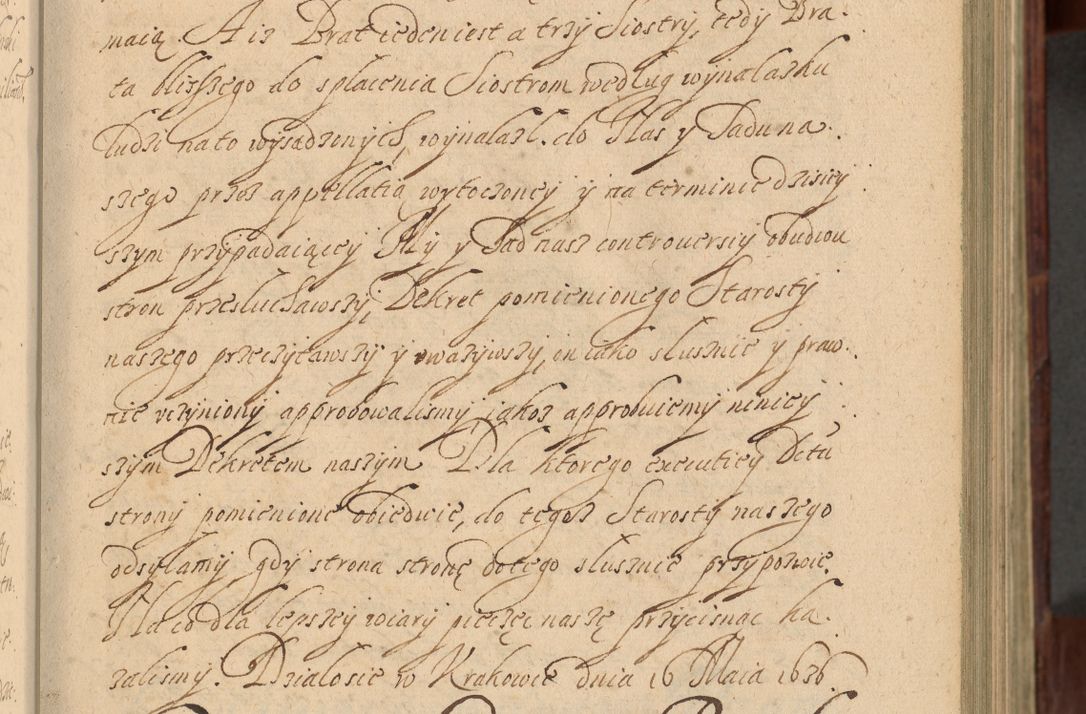 maią. A iz Brat ieden iest a trzy Siostry, tedy Bra-
ta bliszszego do splacenia Siostrom według wynalasku
ludzi na to wysadzonych, wynalazł. do Nas y Sadu na-
szego przez appellatią wytoczoney y na terminie dzisiey-
szym przypadaiącey My y Sad nasz controuersiy obudwu
stron przesluchawszy, Dekret pomienionego Starosty
naszego przeczytawszy y uwazywszy, on iako slusznie y praw-
nie vczyniony approbowalismy, iakoz approbuiemy niniey-
szym Dekretem naszym. Dla ktorego executiey Detu
strony pomienione obiedwie, do tegoz Starosty naszego
odsylamy gdy strona stronę do tego slusznie przypozwie.
Na co dla lepszey wiary pieczęc naszę przycisnac ka-
zalismy. Dzialosie w Krakowie dnia 16 Maia 1636